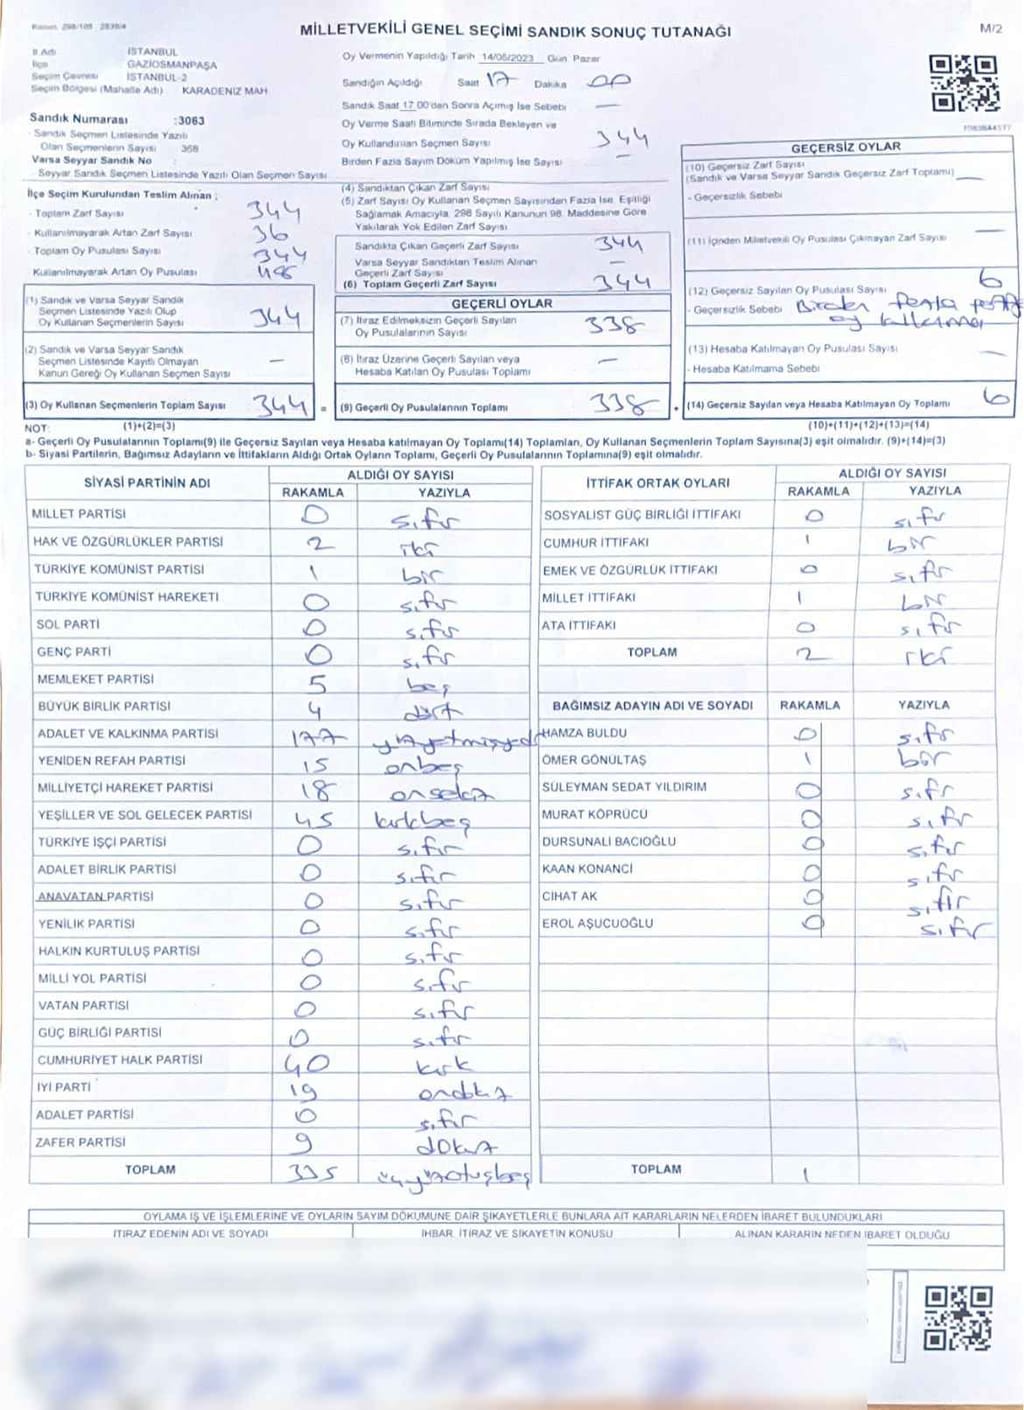 MİLLETVEKİLİ GENEL SEÇİMİ SANDIK SONUÇ TUTANAĞI
M/2
İl Adı İSTANBUL
İlçe GAZİOSMANPAŞA
Seçim Çevresi İSTANBUL-2
Seçim Bölgesi (Mahalle Adı) KARADENİZ MAH
Sandık Numarası :3063
- Sandık Seçmen Listesinde Yazılı
Olan Seçmenlerin Sayısı : 368
Varsa Seyyar Sandık No :
- Seyyar Sandık Seçmen Listesinde Yazılı Olan Seçmen Sayısı
Oy Vermenin Yapıldığı Tarih 14/05/2023 Gün Pazar
Sandığın Açıldığı Saat 17 Dakika 00
Sandık Saat 17.00'den Sonra Açılmış İse Sebebi —
Oy Verme Saati Bitiminde Sırada Bekleyen ve
Oy Kullandırılan Seçmen Sayısı 344
Birden Fazla Sayım Döküm Yapılmış İse Sayısı —
İlçe Seçim Kurulundan Teslim Alınan :
- Toplam Zarf Sayısı 344
- Kullanılmayarak Artan Zarf Sayısı 36
- Toplam Oy Pusulası Sayısı 344
Kullanılmayarak Artan Oy Pusulası
(1) Sandık ve Varsa Seyyar Sandık
Seçmen Listesinde Yazılı Olup
Oy Kullanan Seçmenlerin Sayısı 344
(2) Sandık ve Varsa Seyyar Sandık
Seçmen Listesinde Kayıtlı Olmayan
Kanun Gereği Oy Kullanan Seçmen Sayısı —
(3) Oy Kullanan Seçmenlerin Toplam Sayısı 344 =
(1)+(2)=(3)
(4) Sandıktan Çıkan Zarf Sayısı
(5) Zarf Sayısı Oy Kullanan Seçmen Sayısından Fazla İse, Eşitliği
Sağlamak Amacıyla, 298 Sayılı Kanunun 98. Maddesine Göre
Yakılarak Yok Edilen Zarf Sayısı
Sandıkta Çıkan Geçerli Zarf Sayısı 344
Varsa Seyyar Sandıktan Teslim Alınan
Geçerli Zarf Sayısı —
(6) Toplam Geçerli Zarf Sayısı 344
GEÇERLİ OYLAR
(7) İtiraz Edilmeksizin Geçerli Sayılan
Oy Pusulalarının Sayısı 338
(8) İtiraz Üzerine Geçerli Sayılan veya
Hesaba Katılan Oy Pusulası Toplamı —
(9) Geçerli Oy Pusulalarının Toplamı 338 +
GEÇERSİZ OYLAR
(10) Geçersiz Zarf Sayısı
(Sandık ve Varsa Seyyar Sandık Geçersiz Zarf Toplamı) —
- Geçersizlik Sebebi
(11) İçinden Milletvekili Oy Pusulası Çıkmayan Zarf Sayısı —
(12) Geçersiz Sayılan Oy Pusulası Sayısı 6
- Geçersizlik Sebebi Birden fazla
oy
(13) Hesaba Katılmayan Oy Pusulası Sayısı —
- Hesaba Katılmama Sebebi
(14) Geçersiz Sayılan veya Hesaba Katılmayan Oy Toplamı 6
(10)+(11)+(12)+(13)=(14)
NOT:
a- Geçerli Oy Pusulalarının Toplamı(9) ile Geçersiz Sayılan veya Hesaba katılmayan Oy Toplamı(14) Toplamları, Oy Kullanan Seçmenlerin Toplam Sayısına(3) eşit olmalıdır. (9)+(14)=(3)
b- Siyasi Partilerin, Bağımsız Adayların ve İttifakların Aldığı Ortak Oyların Toplamı, Geçerli Oy Pusulalarının Toplamına(9) eşit olmalıdır.
SİYASİ PARTİNİN ADI
ALDIĞI OY SAYISI
RAKAMLA YAZIYLA
MİLLET PARTİSİ 0 sıfır
HAK VE ÖZGÜRLÜKLER PARTİSİ 2 iki
TÜRKİYE KOMÜNİST PARTİSİ 1 bir
TÜRKİYE KOMÜNİST HAREKETİ 0 sıfır
SOL PARTİ 0 sıfır
GENÇ PARTİ 0 sıfır
MEMLEKET PARTİSİ 5 beş
BÜYÜK BİRLİK PARTİSİ 4 dört
ADALET VE KALKINMA PARTİSİ 177
YENİDEN REFAH PARTİSİ 15 onbeş
MİLLİYETÇİ HAREKET PARTİSİ 18 onsekiz
YEŞİLLER VE SOL GELECEK PARTİSİ 45 kırkbeş
TÜRKİYE İŞÇİ PARTİSİ 0 sıfır
ADALET BİRLİK PARTİSİ 0 sıfır
ANAVATAN PARTİSİ 0 sıfır
YENİLİK PARTİSİ 0 sıfır
HALKIN KURTULUŞ PARTİSİ 0 sıfır
MİLLİ YOL PARTİSİ 0 sıfır
VATAN PARTİSİ 0 sıfır
GÜÇ BİRLİĞİ PARTİSİ 0 sıfır
CUMHURİYET HALK PARTİSİ 40 kırk
İYİ PARTİ 19 ondokuz
ADALET PARTİSİ 0 sıfır
ZAFER PARTİSİ 9 dokuz
TOPLAM 335 üçyüzotuzbeş
İTTİFAK ORTAK OYLARI
ALDIĞI OY SAYISI
RAKAMLA YAZIYLA
SOSYALİST GÜÇ BİRLİĞİ İTTİFAKI 0 sıfır
CUMHUR İTTİFAKI 1 bir
EMEK VE ÖZGÜRLÜK İTTİFAKI 0 sıfır
MİLLET İTTİFAKI 1 bir
ATA İTTİFAKI 0 sıfır
TOPLAM 2 iki
BAĞIMSIZ ADAYIN ADI VE SOYADI RAKAMLA YAZIYLA
HAMZA BULDU 0 sıfır
ÖMER GÖNÜLTAŞ 1 bir
SÜLEYMAN SEDAT YILDIRIM 0 sıfır
MURAT KÖPRÜCÜ 0 sıfır
DURSUNALİ BACIOĞLU 0 sıfır
KAAN KONANCİ 0 sıfır
CİHAT AK 0 sıfır
EROL AŞUCUOĞLU 0 sıfır
TOPLAM 1
OYLAMA İŞ VE İŞLEMLERİNE VE OYLARIN SAYIM DÖKÜMÜNE DAİR ŞİKAYETLERLE BUNLARA AİT KARARLARIN NELERDEN İBARET BULUNDUKLARI
İTİRAZ EDENİN ADI VE SOYADI İHBAR, İTİRAZ VE ŞİKAYETİN KONUSU ALINAN KARARIN NEDEN İBARET OLDUĞU